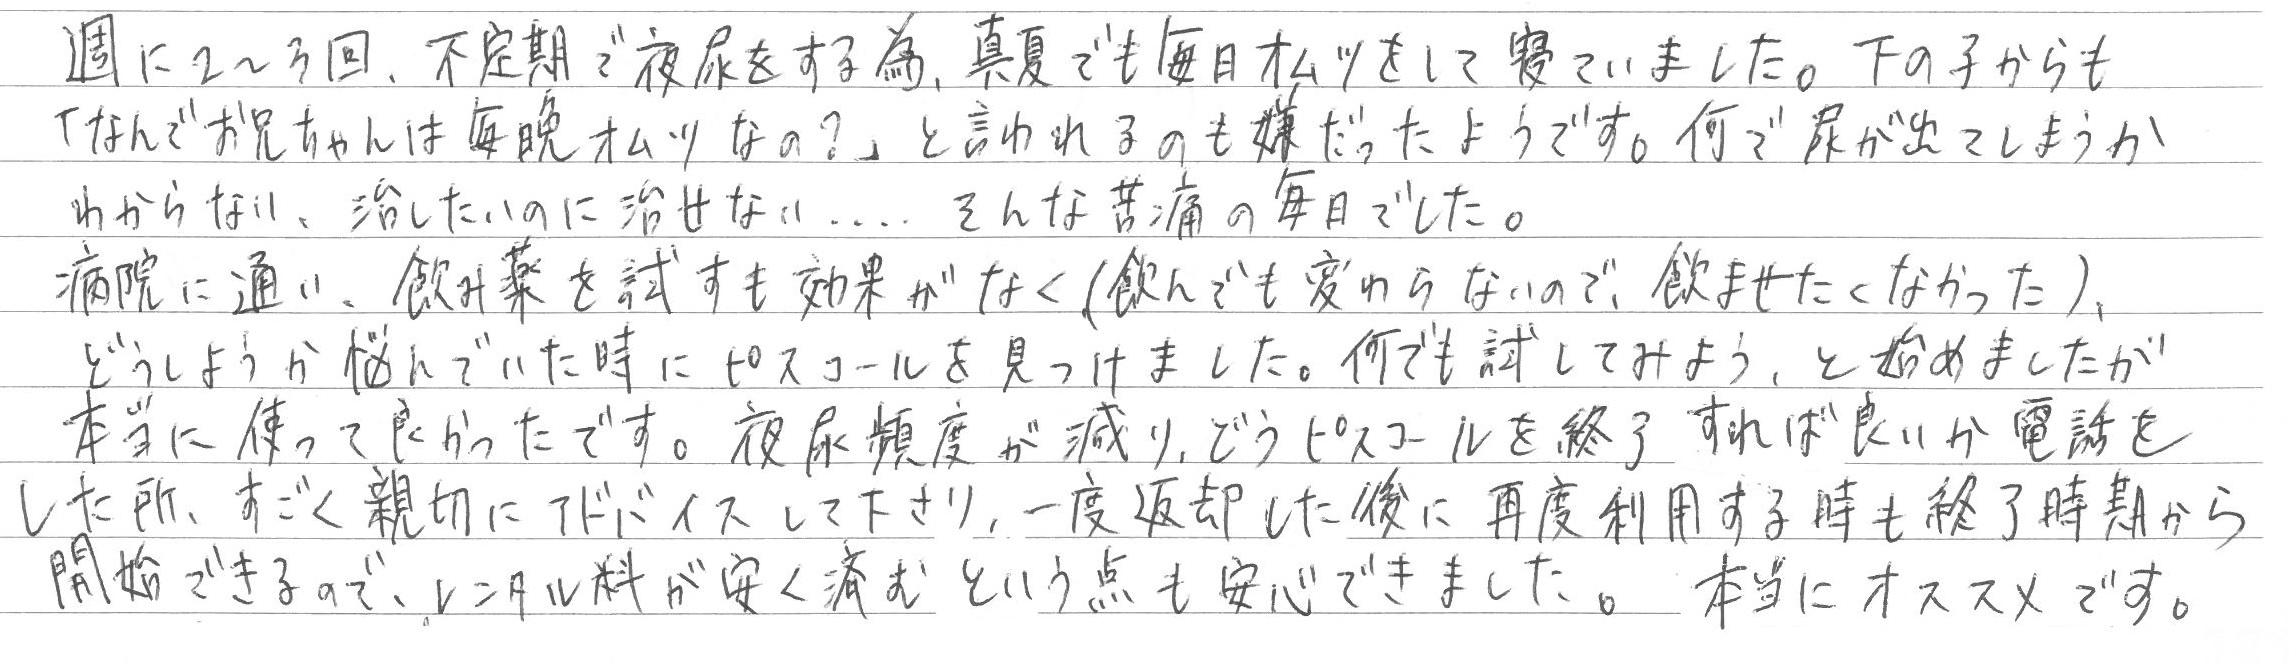 週に2~3回、不定期で夜尿をする為、真夏でも毎日オムツをして寝ていました。下の子からも
「なんでお兄ちゃんは毎晩オムツなの?」と言われるのも嫌だったようです。何で尿が出てしまうか
わからない、治したいのに治せない.... そんな苦痛の毎日でした。
病院に通い、飲み薬を試すも効果がなく(飲んでも変わらないので、飲ませたくなかった)、
どうしようか悩んでいた時にピスコールを見つけました。何でも試してみよう、と始めましたが
本当に使って良かったです。夜尿頻度が減り、どうピスコールを終了すれば良いか電話を
した所、すごく親切にアドバイスして下さり、一度返却した後に再度利用する時も終了時期から
開始できるので、レンタル料が安く済むという点も安心できました。 本当にオススメです。